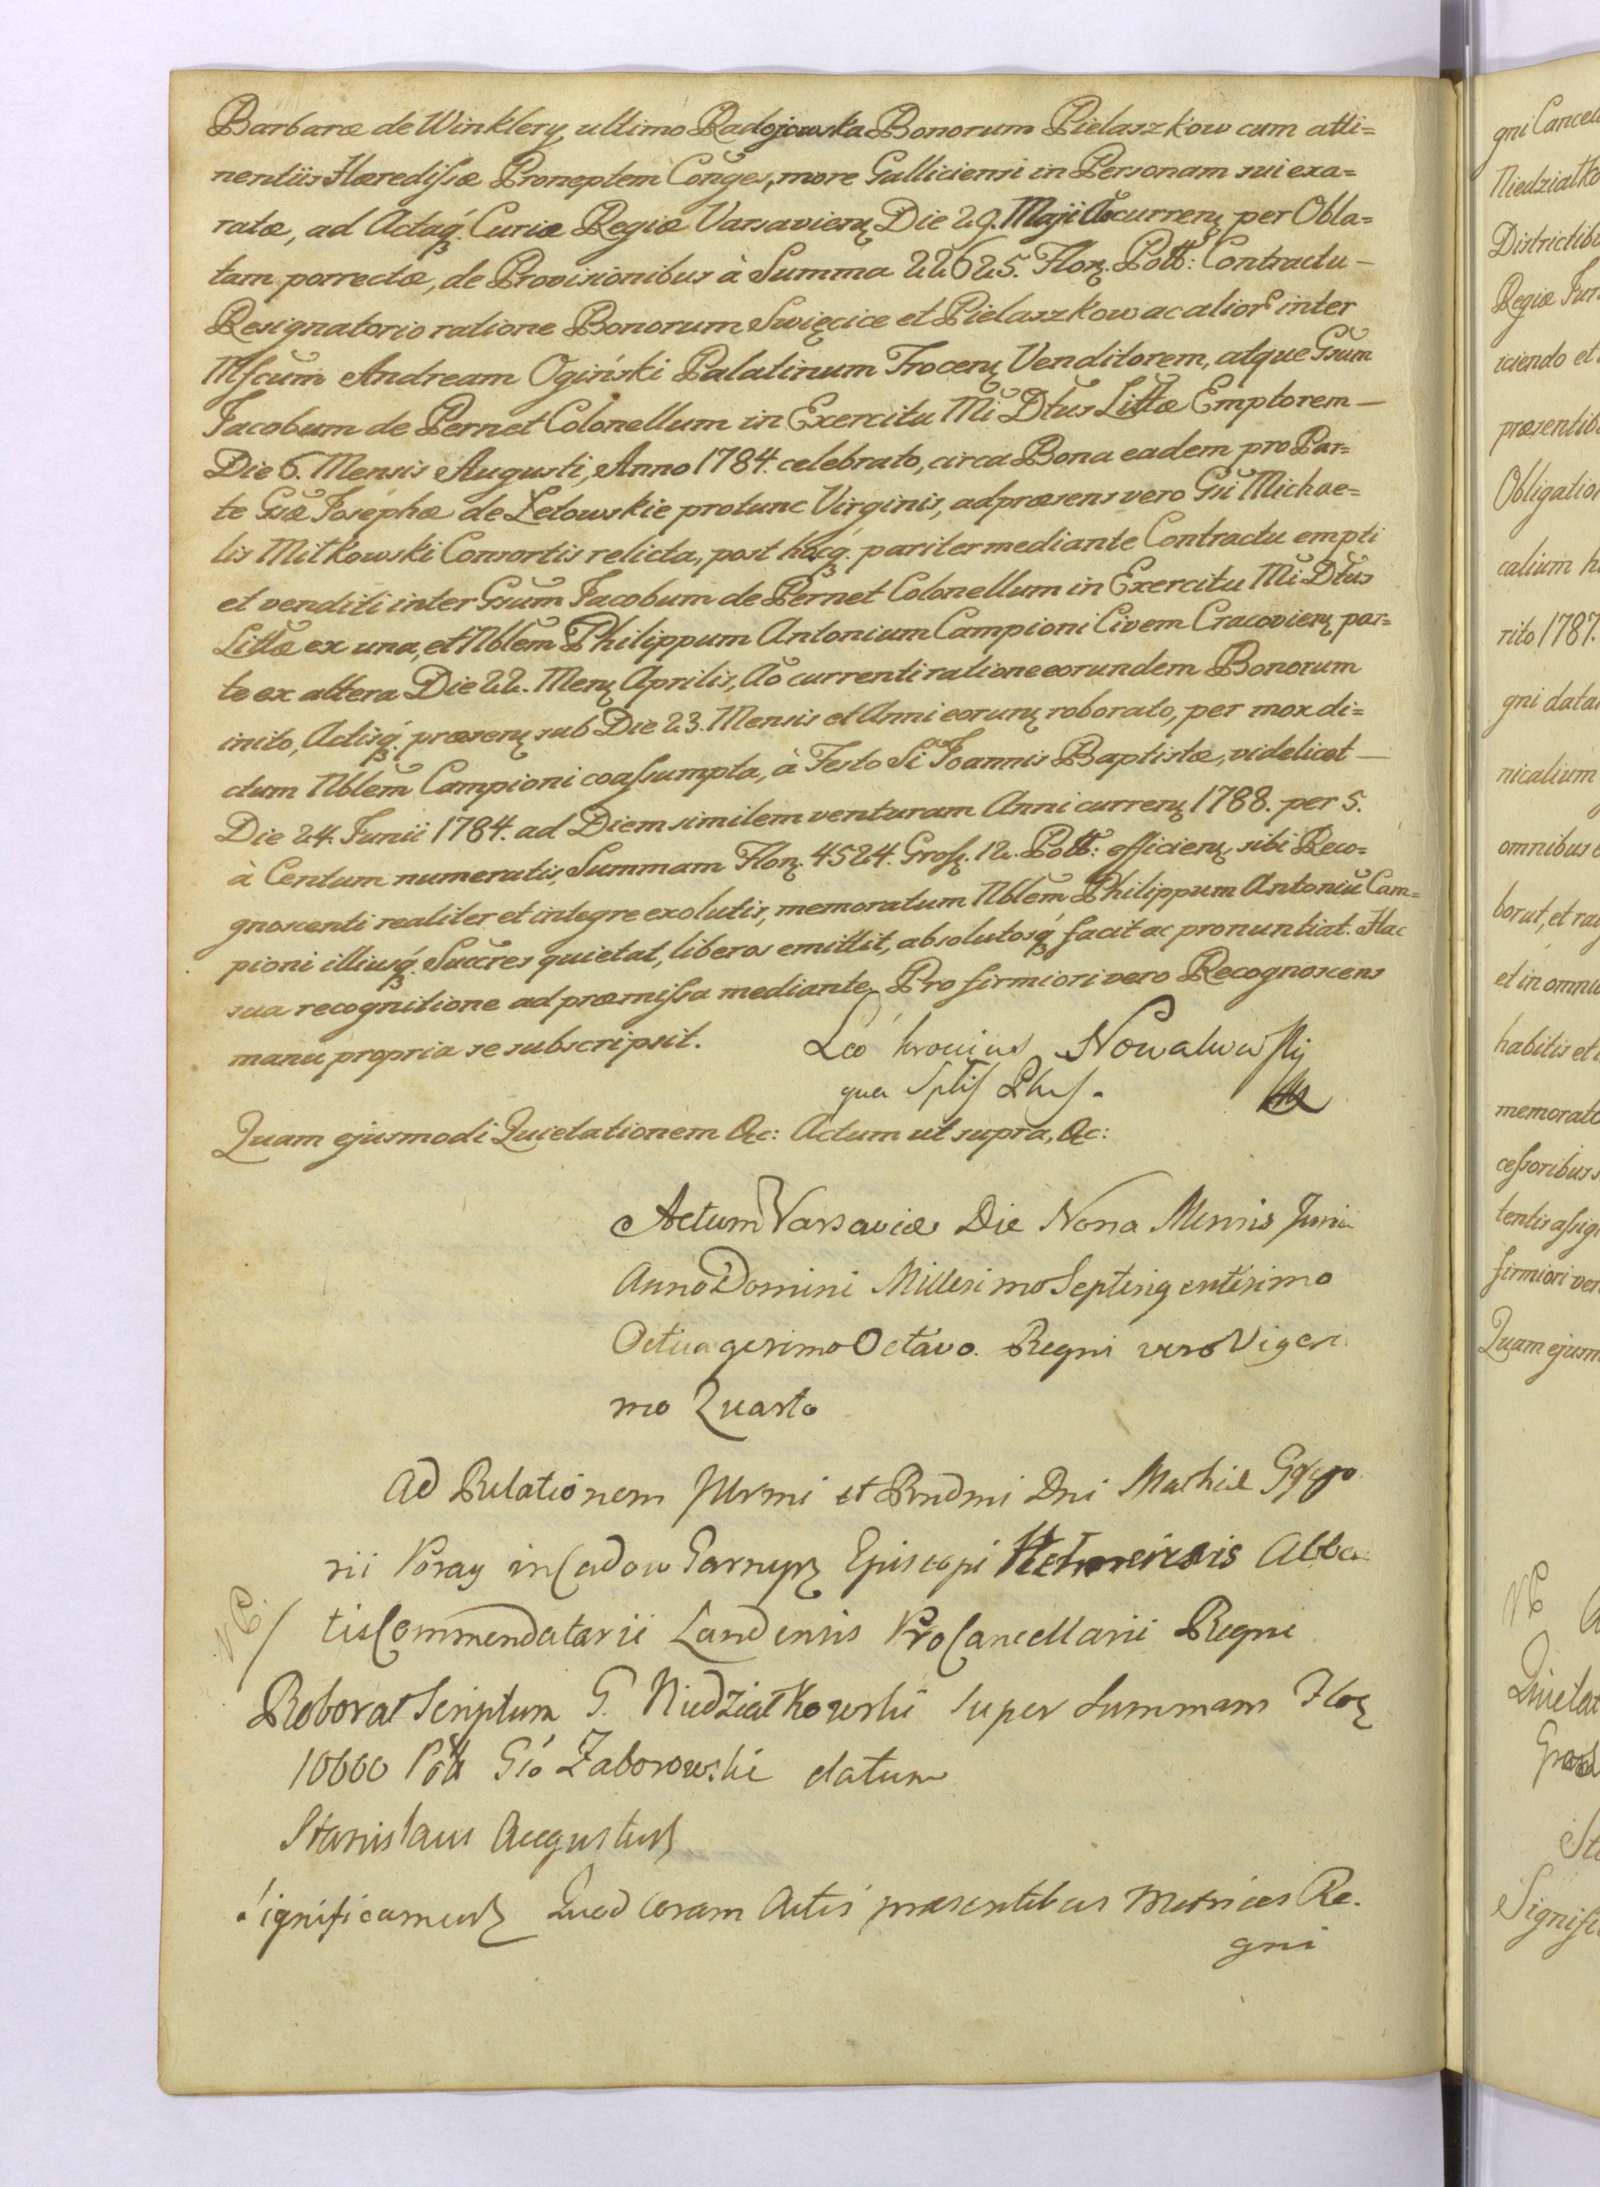 Barbaræ de Winklery, ultimo Radojowska Bonorum Pielaszkow cum atti=
nentiis Hæredissæ Proneptem Conges, more Galliciensi in Personam sui exa=
ratæ, ad Actaq́ꝫ Curiæ Regiæ Varsavienꝫ Die 29. Maji Ao currenꝫ per Obla=
tam porrectæ, de Provisionibus à Summa 22625. Florꝫ. Poll: Contractu —
Resignatorio ratione Bonorum Swięcice et Pielaszkow ac alior inter
Mfcum Andream Ogiński Palatinum Trocenꝫ Venditorem, atque Gsum
Jacobum de Pernet Colonellum in Exercitu Mi Dtus Littæ Emptorem —
Die 6. Mensis Augusti, Anno 1784. celebrato, circa Bona eadem pro Par=
te Gsæ Josephæ de Letowskie protunc Virginis, ad præsens vero Gsi Michae=
lis Mitkowski Consortis relicta, post hocq́ꝫ pariter mediante Contractu empti
et venditi inter Gsum Jacobum de Pernet Colonellum in Exercitu Mi Dtus
Littæ ex una, et Nblem Philippum Antonium Campioni Civem Cracovienꝫ par=
te ex altera Die 22. Menꝫ Aprilis, Ao currenti ratione eorundem Bonorum
inito, Actisq́ꝫ præsenꝫ sub Die 23. Mensis et Anni eorunꝫ roborato, per mox di=
ctum Nblem Campioni coassumpta, à Festo Si Joannis Baptistæ, videlicet —
Die 24. Junii 1784. ad Diem similem venturam Anni currenꝫ 1788. per 5.
à Centum numeratis, Summam Florꝫ. 4524. Grosꝫ. 12. Poll: efficienꝫ sibi Reco=
gnoscenti realiter et integre exolutis, memoratum Nblem Philippum Antoniu Cam=
pioni illiusq́ꝫ Succres quietat, liberos emittit, absolutosq́ꝫ facit ac pronuntiat. Hac
sua recognitione ad præmissa mediante. Pro firmiori vero Recognoscens
manu propria se subscripsit.
Nowalewsky
qua
Quam ejusmodi Quietationem &c: Actum ut supra, &c:
Actum Varsaviæ Die Nona Mensis Junii
Anno Domini Millesimo Septingentesimo
Octuagesimo Octavo. Regni vero Vigesi
mo Quarto
Ad Relationem Illrmi et Rndmi Dni Mathiæ
rii Poray in Cadow Garnyꝫ Episcopi Abba
tis Commendatarii Landensis ProCancellarii Regni
Roborat Scriptum G. Niedziatkowski super summam Florꝫ
10000 Poll Gso Zaborowski datum
Stanislaus Augustus
Significamus Quod coram Actis præsentibus Metrices Re.
gni